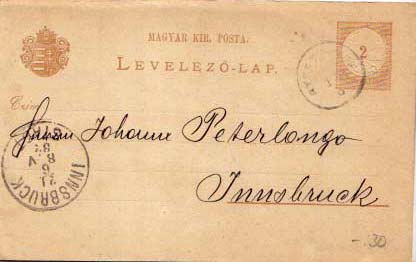 MAGYAR KIR. POSTA.
LEVELEZŐ-LAP.
2
Czim
Herrn Johann Peterlongo
Innsbruck
INNSBRUCK
STADT
-.30